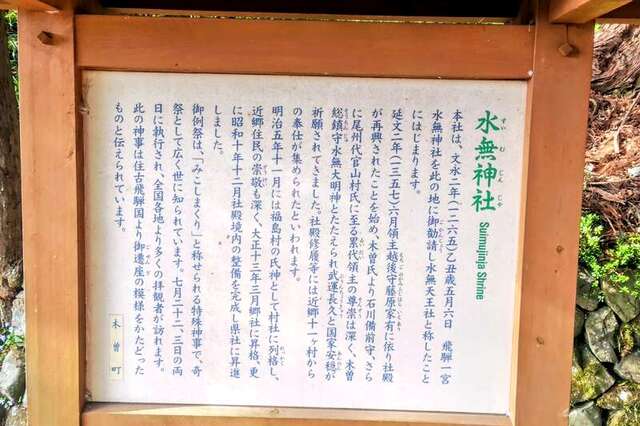 水無神社 Suimujinja Shrine
本社は、文永二年（一二六五）乙丑歳五月六日　飛騨一宮
水無神社を此の地に御勧請し水無天王社と称したこと
にはじまります。
延文二年（一三五七）六月領主越後守藤原家有に依り社殿
が再興されたことを始め、木曽氏より石川備前守、さら
に尾州代官山村氏に至る累代領主の尊崇は深く、木曽
総鎮守水無大明神とたたえられ武運長久と国家安穏が
祈願されてきました。社殿修履等には近郷十一ヶ村から
の奉仕が集められたといわれます。
明治五年十一月には福島村の氏神として村社に列格し、
近郷住民の崇敬も深く、大正十三年三月郷社に昇格、更
に昭和十年十二月社殿境内の整備を完成し県社に昇進
しました。
御例祭は、「みこしまくり」と称せられる特殊神事で、奇
祭として広く世に知られています。七月二十二、三日の両
日に執行され、全国各地より多くの拝観者が訪れます。
此の神事は往古飛騨国より御遷座の模様をかたどった
ものと伝えられています。
木曽町